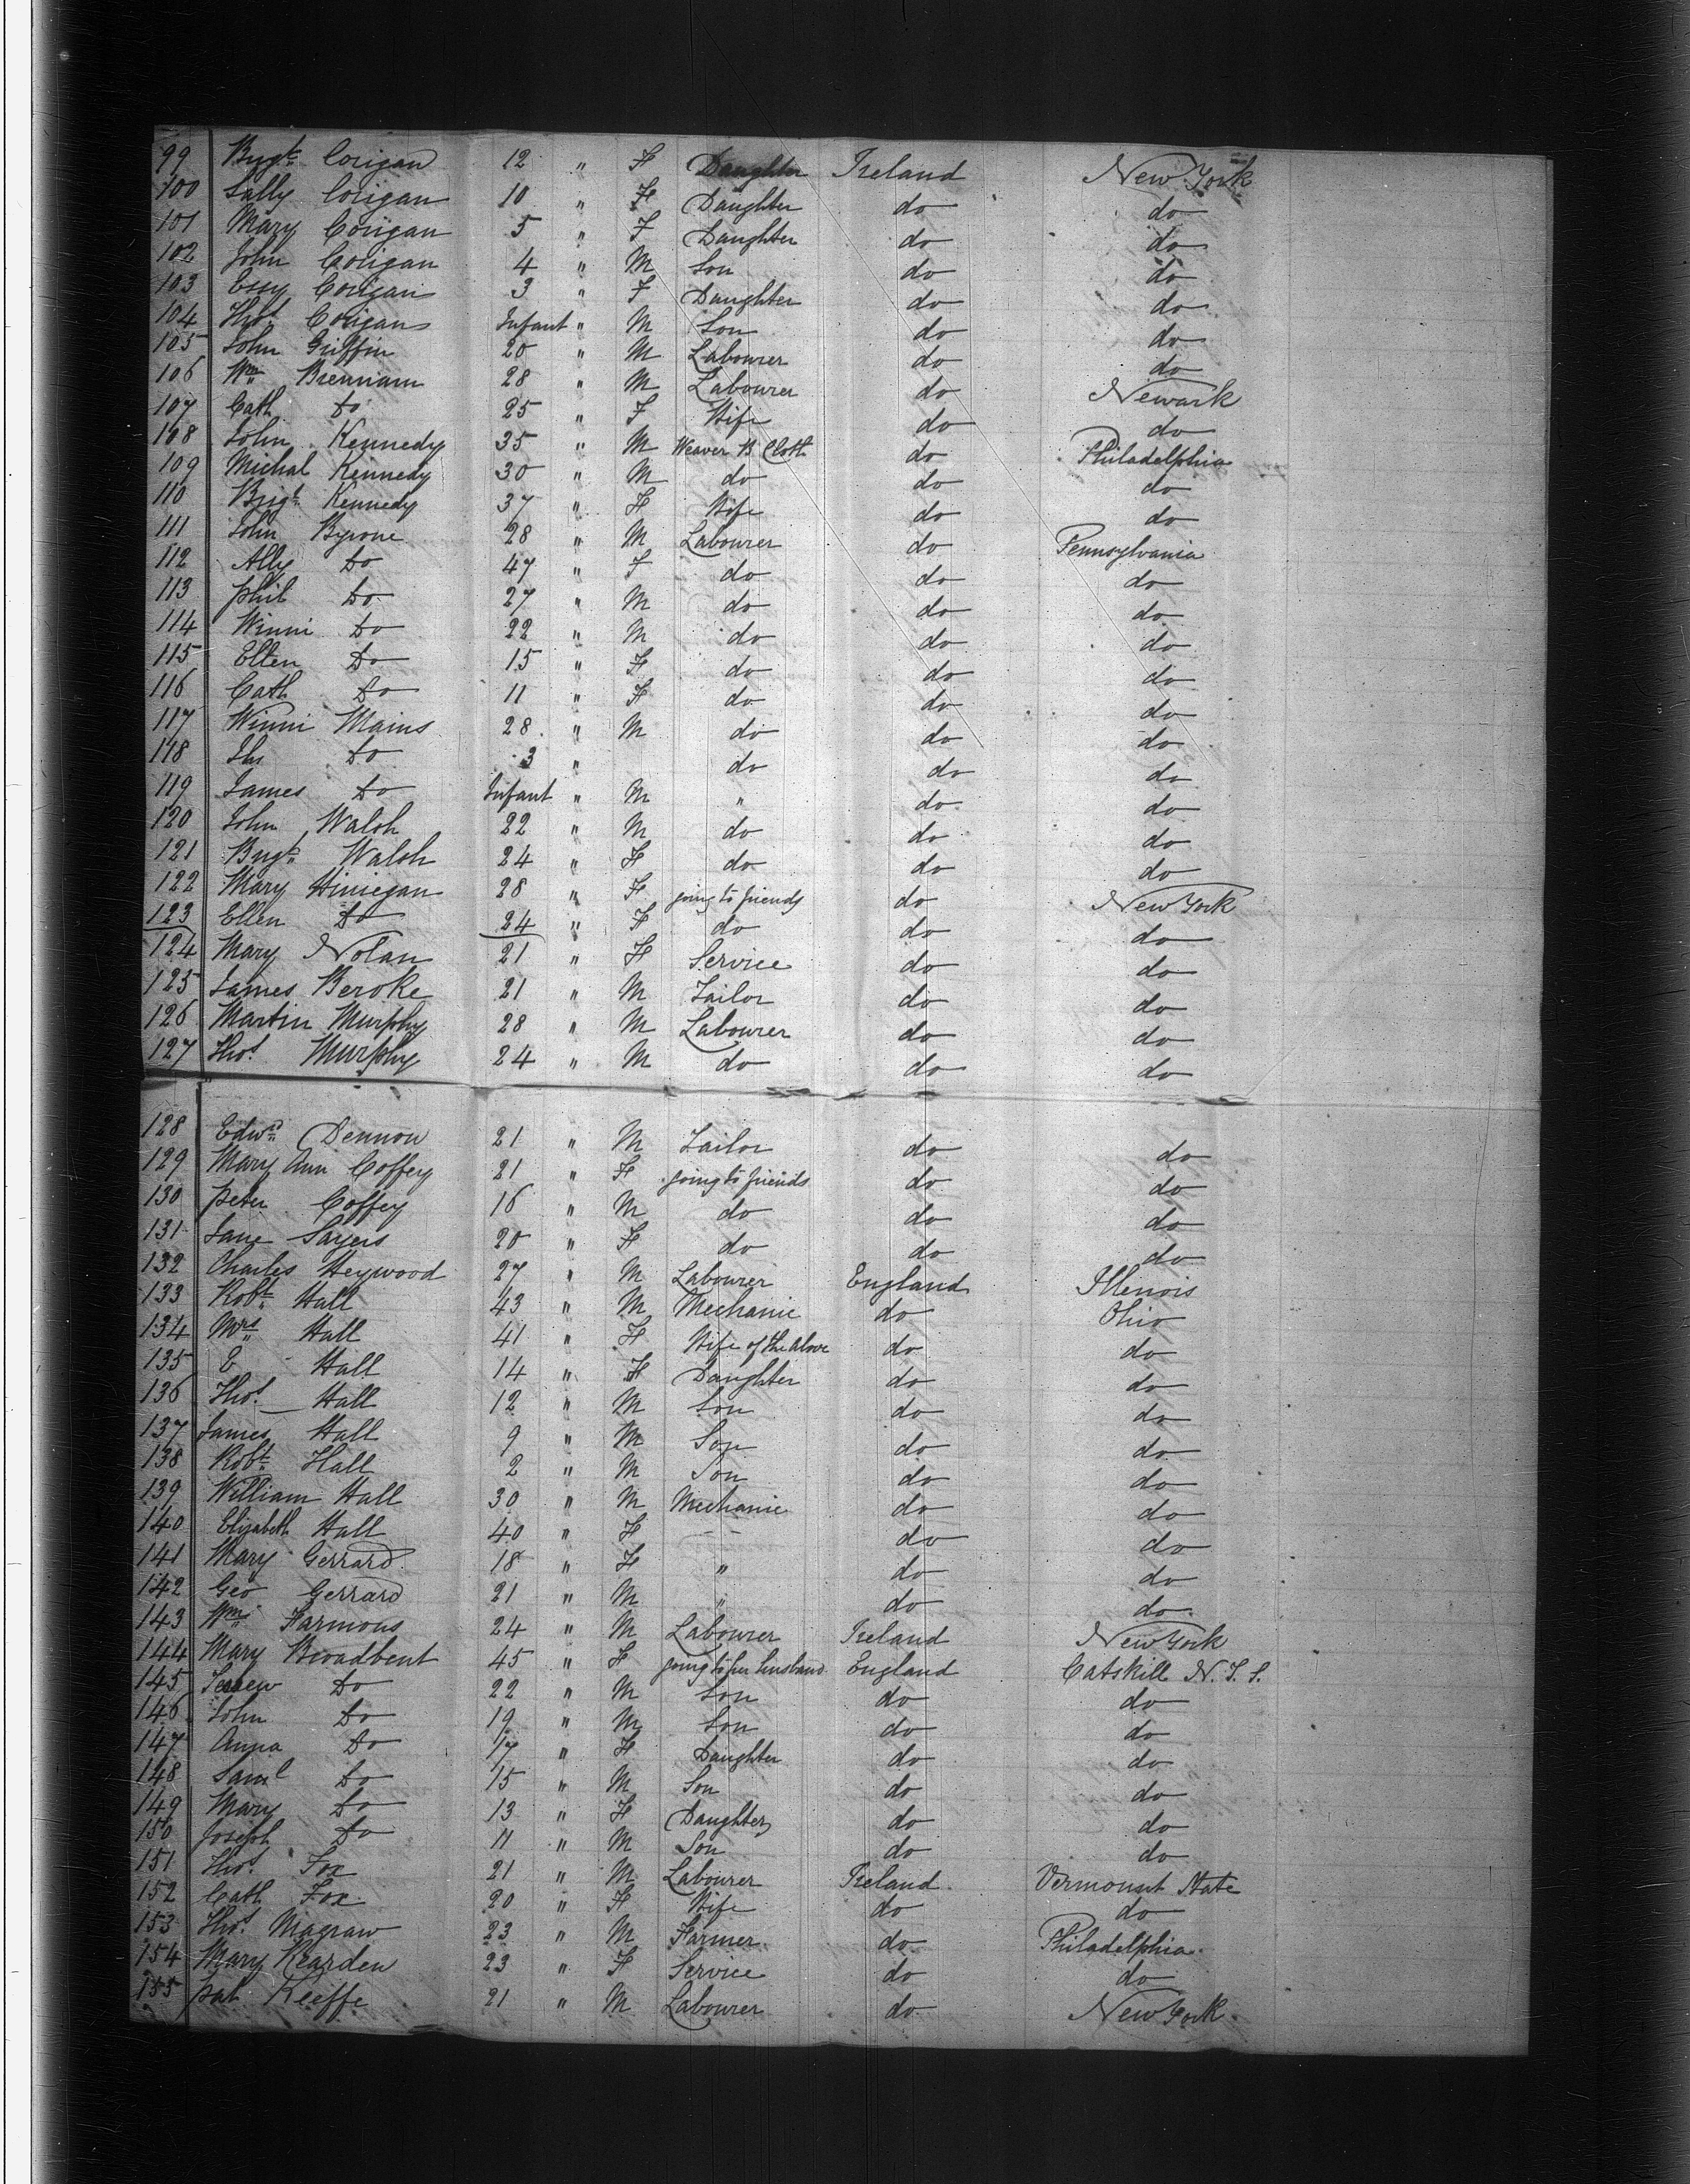 99 Brigt. Corigan 12 " F Daughter Ireland New York
100 Sally Corigan 10 " F Daughter do do
101 Mary Corigan 5 " F Daughter do do
102 John Corigan 4 " M Son do do
103 Essy Corigan 3 " F Daughter do do
104 Thos. Corigan Infant " M Son do do
105 John Griffin 20 " M Labourer do do
106 Wm. Brennam 28 " M Labourer do Newark
107 Cath Do 25 " F Wife do do
108 John Kennedy 35 " M Weaver B Cloth do Philadelphia
109 Michal Kennedy 30 " M do do do
110 Brigt. Kennedy 37 " F Wife do do
111 John Byrone 28 " M Labourer do Pennsylvania
112 Ally Do 47 " F do do do
113 Phil Do 27 " M do do do
114 Winni Do 22 " M do do do
115 Ellen Do 15 " F do do do
116 Cath Do 11 " F do do do
117 Winni Mains 28 " M do do do
118 Do 3 " do do do
119 James Do Infant " M " do do
120 John Walsh 22 " M do do do
121 Brigt. Walsh 24 " F do do do
122 Mary Hiniegan 28 " F going to friends do New York
123 Ellen Do 24 " F do do do
124 Mary Nolan 21 " F Service do do
125 James Beroke 21 " M Tailor do do
126 Martin Murphy 28 " M Labourer do do
127 Thos. Murphy 24 " M do do do
128 Edwd. Dennon 21 " M Tailor do do
129 Mary Ann Coffey 21 " F going to friends do do
130 Peter Coffey 16 " M do do do
131 Jane Sayers 20 " F do do do
132 Charles Heywood 27 " M Labourer England Illenois
133 Robt. Hall 43 " M Mechanic do Ohio
134 Mrs Hall 41 " F Wife of the above do do
135 E Hall 14 " F Daughter do do
136 Thos. Hall 12 " M Son do do
137 James Hall 9 " M Son do do
138 Robt. Hall 2 " M Son do do
139 William Hall 30 " M Mechanic do do
140 Elizabeth Hall 40 " F do do
141 Mary Gerrard 18 " F " do do
142 Geo Gerrard 21 " M " do do
143 Wm. Farmons 24 " M Labourer Ireland New York
144 Mary Broadbent 45 " F going to her husband England Catskill N.Y.S.
145 Do 22 " M Son do do
146 John Do 19 " M Son do do
147 Anna Do 17 " F Daughter do do
148 Saml Do 15 " M Son do do
149 Mary Do 13 " F Daughter do do
150 Joseph Do 11 " M Son do do
151 Thos. Fox 21 " M Labourer Ireland Vermount State
152 Cath Fox 20 " F Wife do do
153 Thos. Magraw 23 " M Farmer do Philadelphia
154 Mary Rearden 23 " F Service do do
155 Pat Keeffe 21 " M Labourer do New York